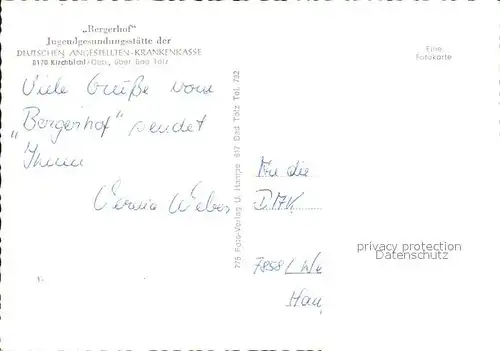 „Bergerhof"
Jugendgesundungsstätte der
DEUTSCHEN ANGESTELLTEN-KRANKENKASSE
8170 Kirchbichl/Obb., über Bad Tölz
Eine
Fotokarte
Viele Grüße vom
„Bergerhof" sendet
Ihnen
Weber
775 Foto-Verlag U. Hampe 817 Bad Tölz Tel. 792
An die
7858/ We
privacy protection
Datenschutz